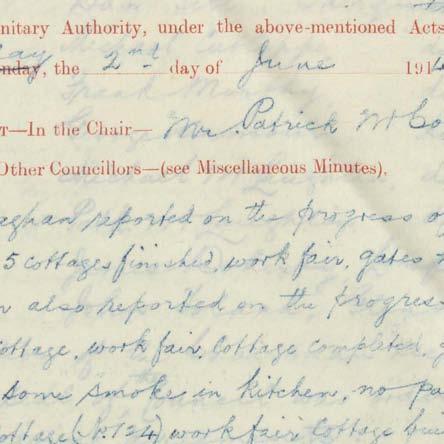 nitary Authority, under the above-mentioned Acts
nday, the 2nd day of June 191
r—In the Chair— Mr. Patrick McCo
Other Councillors—(see Miscellaneous Minutes).
aghan reported on the progress of
5 cottages finished, work fair, gates
n also reported on the progress
ottage, work fair, Cottage completed,
some smoke in kitchen, no pa
ottage (No. 124) work fair Cottage